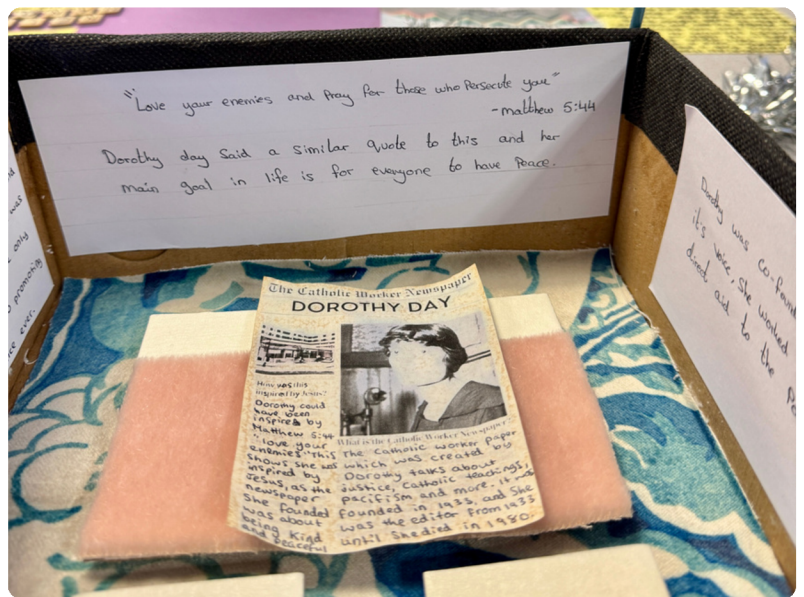 "Love your enemies and pray for those who persecute you"
-matthew 5:44
Dorothy day Said a similar quote to this and her
main goal in life is for everyone to have Peace.
was
only
promoting
ever.
Dorothy was co-found
it's voice. She worked
direct aid to the
The Catholic Worker Newspaper
DOROTHY DAY
How was this
inspired by Jesus?
Dorothy could
have been
inspired by
Matthew 5:44
"love your
enemies" This
shows she was
inspired by
Jesus, as the
newspaper
she founded
was about
being kind
and peaceful
What is the Catholic Worker Newspaper?
The catholic worker paper
which was created by
Dorothy talks about
justice, Catholic teachings,
pacifism and more. It was
founded in 1933, and She
was the editor from 1933
until She died in 1980.